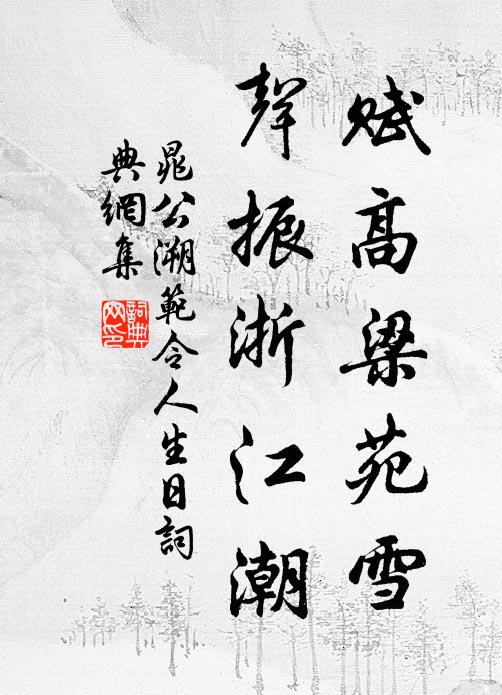 賦高梁苑雪
聲振浙江潮
晁公溯範令人生日詞
典網集
詞典
网印